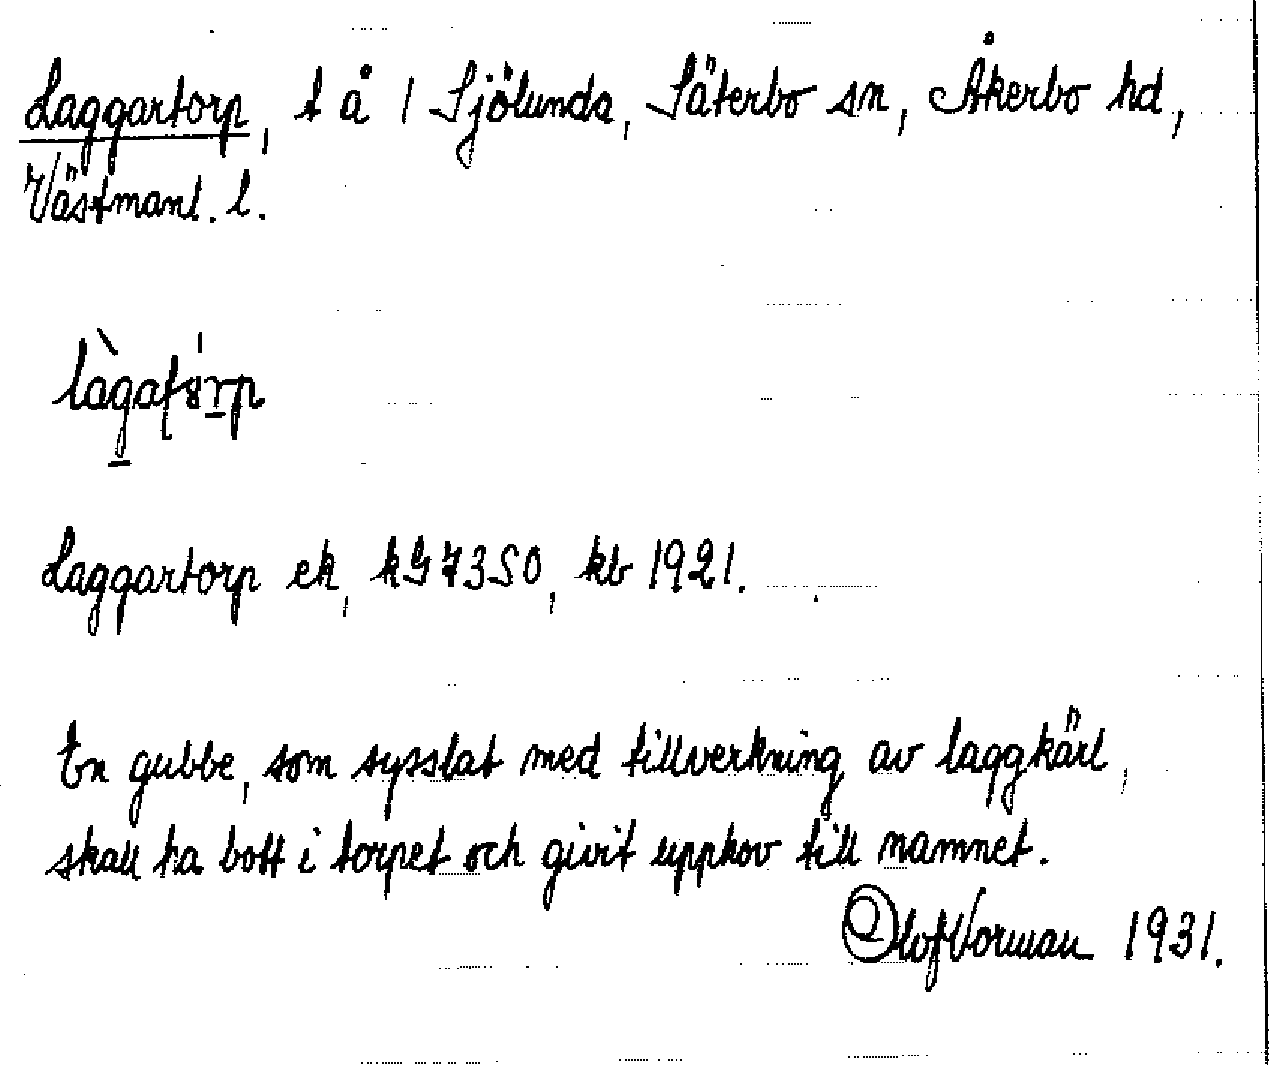 Laggartorp, t å 1 Sjölunda, Säterbo sn, Åkerbo hd,
Västmanl. l.
Laggartorp ek, kG 73 SO, kb 1921.
En gubbe, som sysslat med tillverkning av laggkärl,
skall ha bott i torpet och givit upphov till namnet.
Olof Vorman 1931.